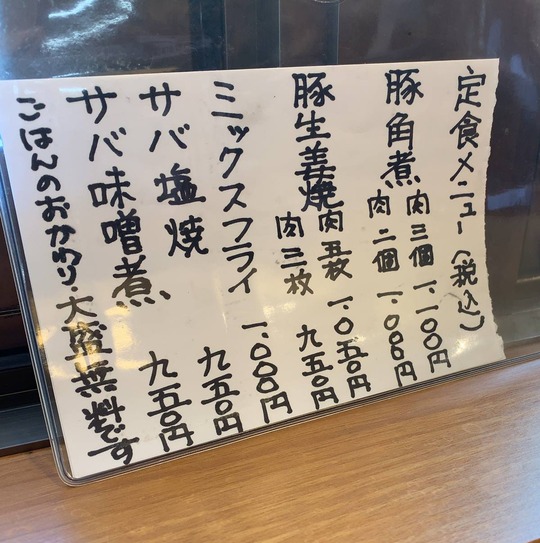 定食メニュー(税込)
豚角煮 肉三個 一、一〇〇円
肉二個 一、〇〇〇円
豚生姜焼 肉五枚 一、〇五〇円
肉三枚 九五〇円
ミックスフライ 一、〇〇〇円
サバ塩焼 九五〇円
サバ味噌煮 九五〇円
ごはんのおかわり・大盛無料です